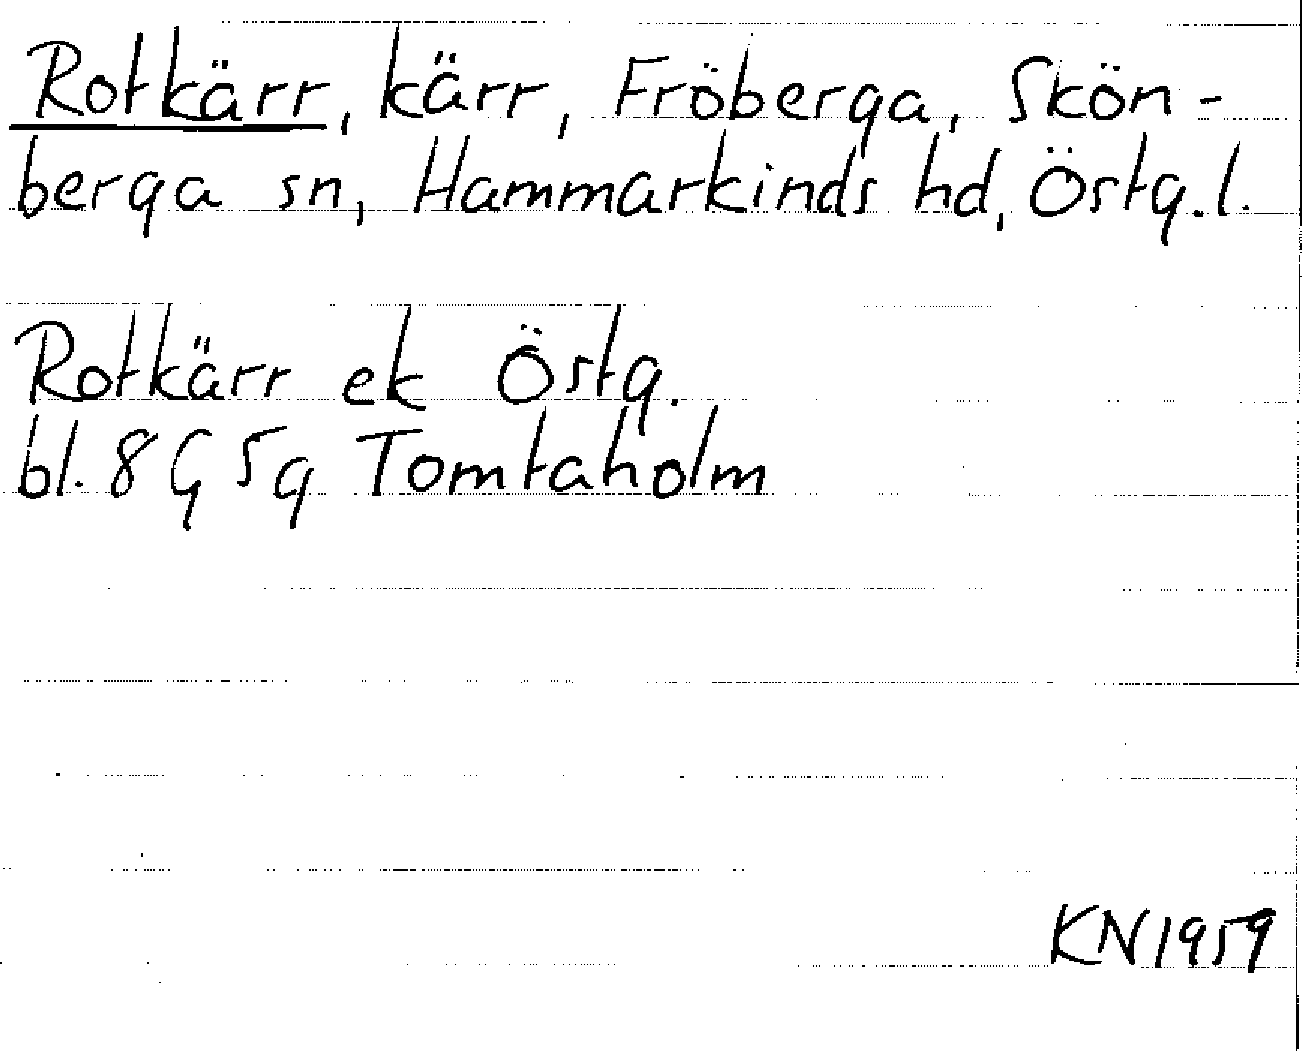 Rotkärr, kärr, Fröberga, Skön-
berga sn, Hammarkinds hd, Östg.l.
Rotkärr ek Östg.
bl. 8 G 5 g Tomtaholm
KN 1959